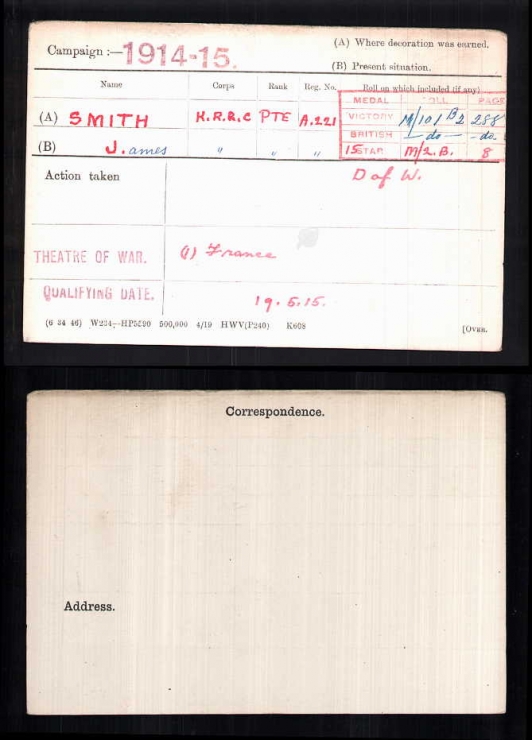 Campaign :—1914-15. (A) Where decoration was earned.
(B) Present situation.
Name Corps Rank Reg. No. Roll on which included (if any)
MEDAL ROLL PAGE
(A) SMITH K.R.R.C PTE A.221 VICTORY M/101 B2 288
BRITISH — do — - do -
(B) J.ames " " " 15 STAR M/2.B. 8
Action taken D of W.
THEATRE OF WAR. (1) France
QUALIFYING DATE. 19.5.15.
(6 34 46) W234—HP5590 500,000 4/19 HWV(P240) K608 (Over.
Correspondence.
Address.